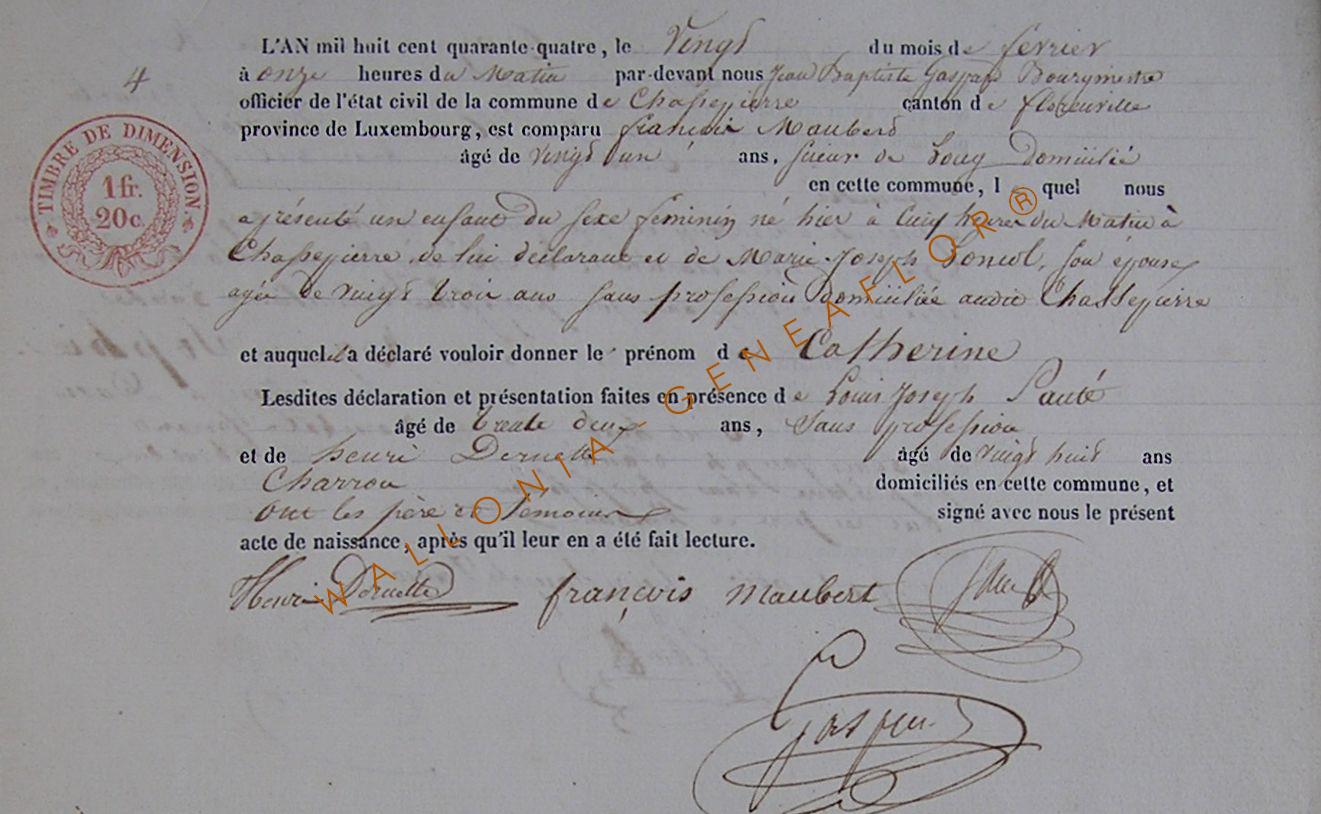 L'AN mil huit cent quarante-quatre, le Vingt du mois de fevrier
4
à onze heures du Matin par-devant nous Jean Baptiste Gaspard Bourgmestre
officier de l'état civil de la commune de Chassepierre canton de florenville
province de Luxembourg, est comparu françois Maubert
âgé de vingt un ans, scieur de Long Domicilié
en cette commune, lequel nous
a présenté un enfant du sexe féminin né hier à cinq heures du Matin à
Chassepierre de lui déclarant et de Marie Joseph son épouse
agée de vingt trois ans sans profession domiciliée audit Chassepierre
et auquel il a déclaré vouloir donner le prénom de Catherine
Lesdites déclaration et présentation faites en présence de Louis Joseph
âgé de trente deux ans, Sans profession
et de henri Dernette âgé de vingt huit ans
Charron domiciliés en cette commune, et
ont les père et témoins signé avec nous le présent
acte de naissance, après qu'il leur en a été fait lecture.
Henri Dernette françois Maubert
Gaspard
TIMBRE DE DIMENSION
1 fr.
20 c.
WALLONIA-GENEAFLOR®